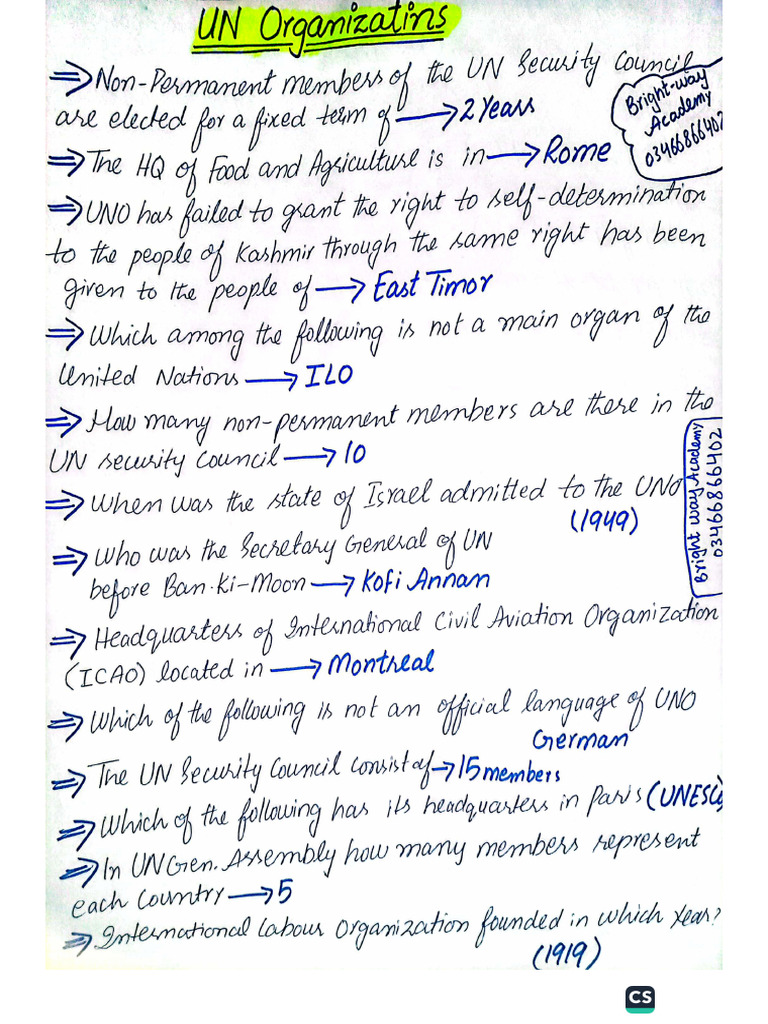 UN Organizatins
⇒ Non-Permanent members of the UN Security Council
are elected for a fixed term of → 2 Years
Bright-way
Academy
03466866402
⇒ The HQ of Food and Agriculture is in → Rome
⇒ UNO has failed to grant the right to self-determination
to the people of Kashmir through the same right has been
given to the people of → East Timor
⇒ Which among the following is not a main organ of the
United Nations → ILO
⇒ How many non-permanent members are there in the
UN security Council → 10
⇒ When was the state of Israel admitted to the UNO
(1949)
Bright Way Academy
03466866402
⇒ Who was the Secretary General of UN
before Ban-Ki-Moon → Kofi Annan
⇒ Headquarters of International Civil Aviation Organization
(ICAO) located in → Montreal
⇒ Which of the following is not an official language of UNO
German
⇒ The UN Security Council consist of → 15 members
⇒ Which of the following has its headquarters in Paris (UNESCO)
⇒ In UN Gen. Assembly how many members represent
each Country → 5
⇒ International Labour Organization founded in which Year?
(1919)
CS